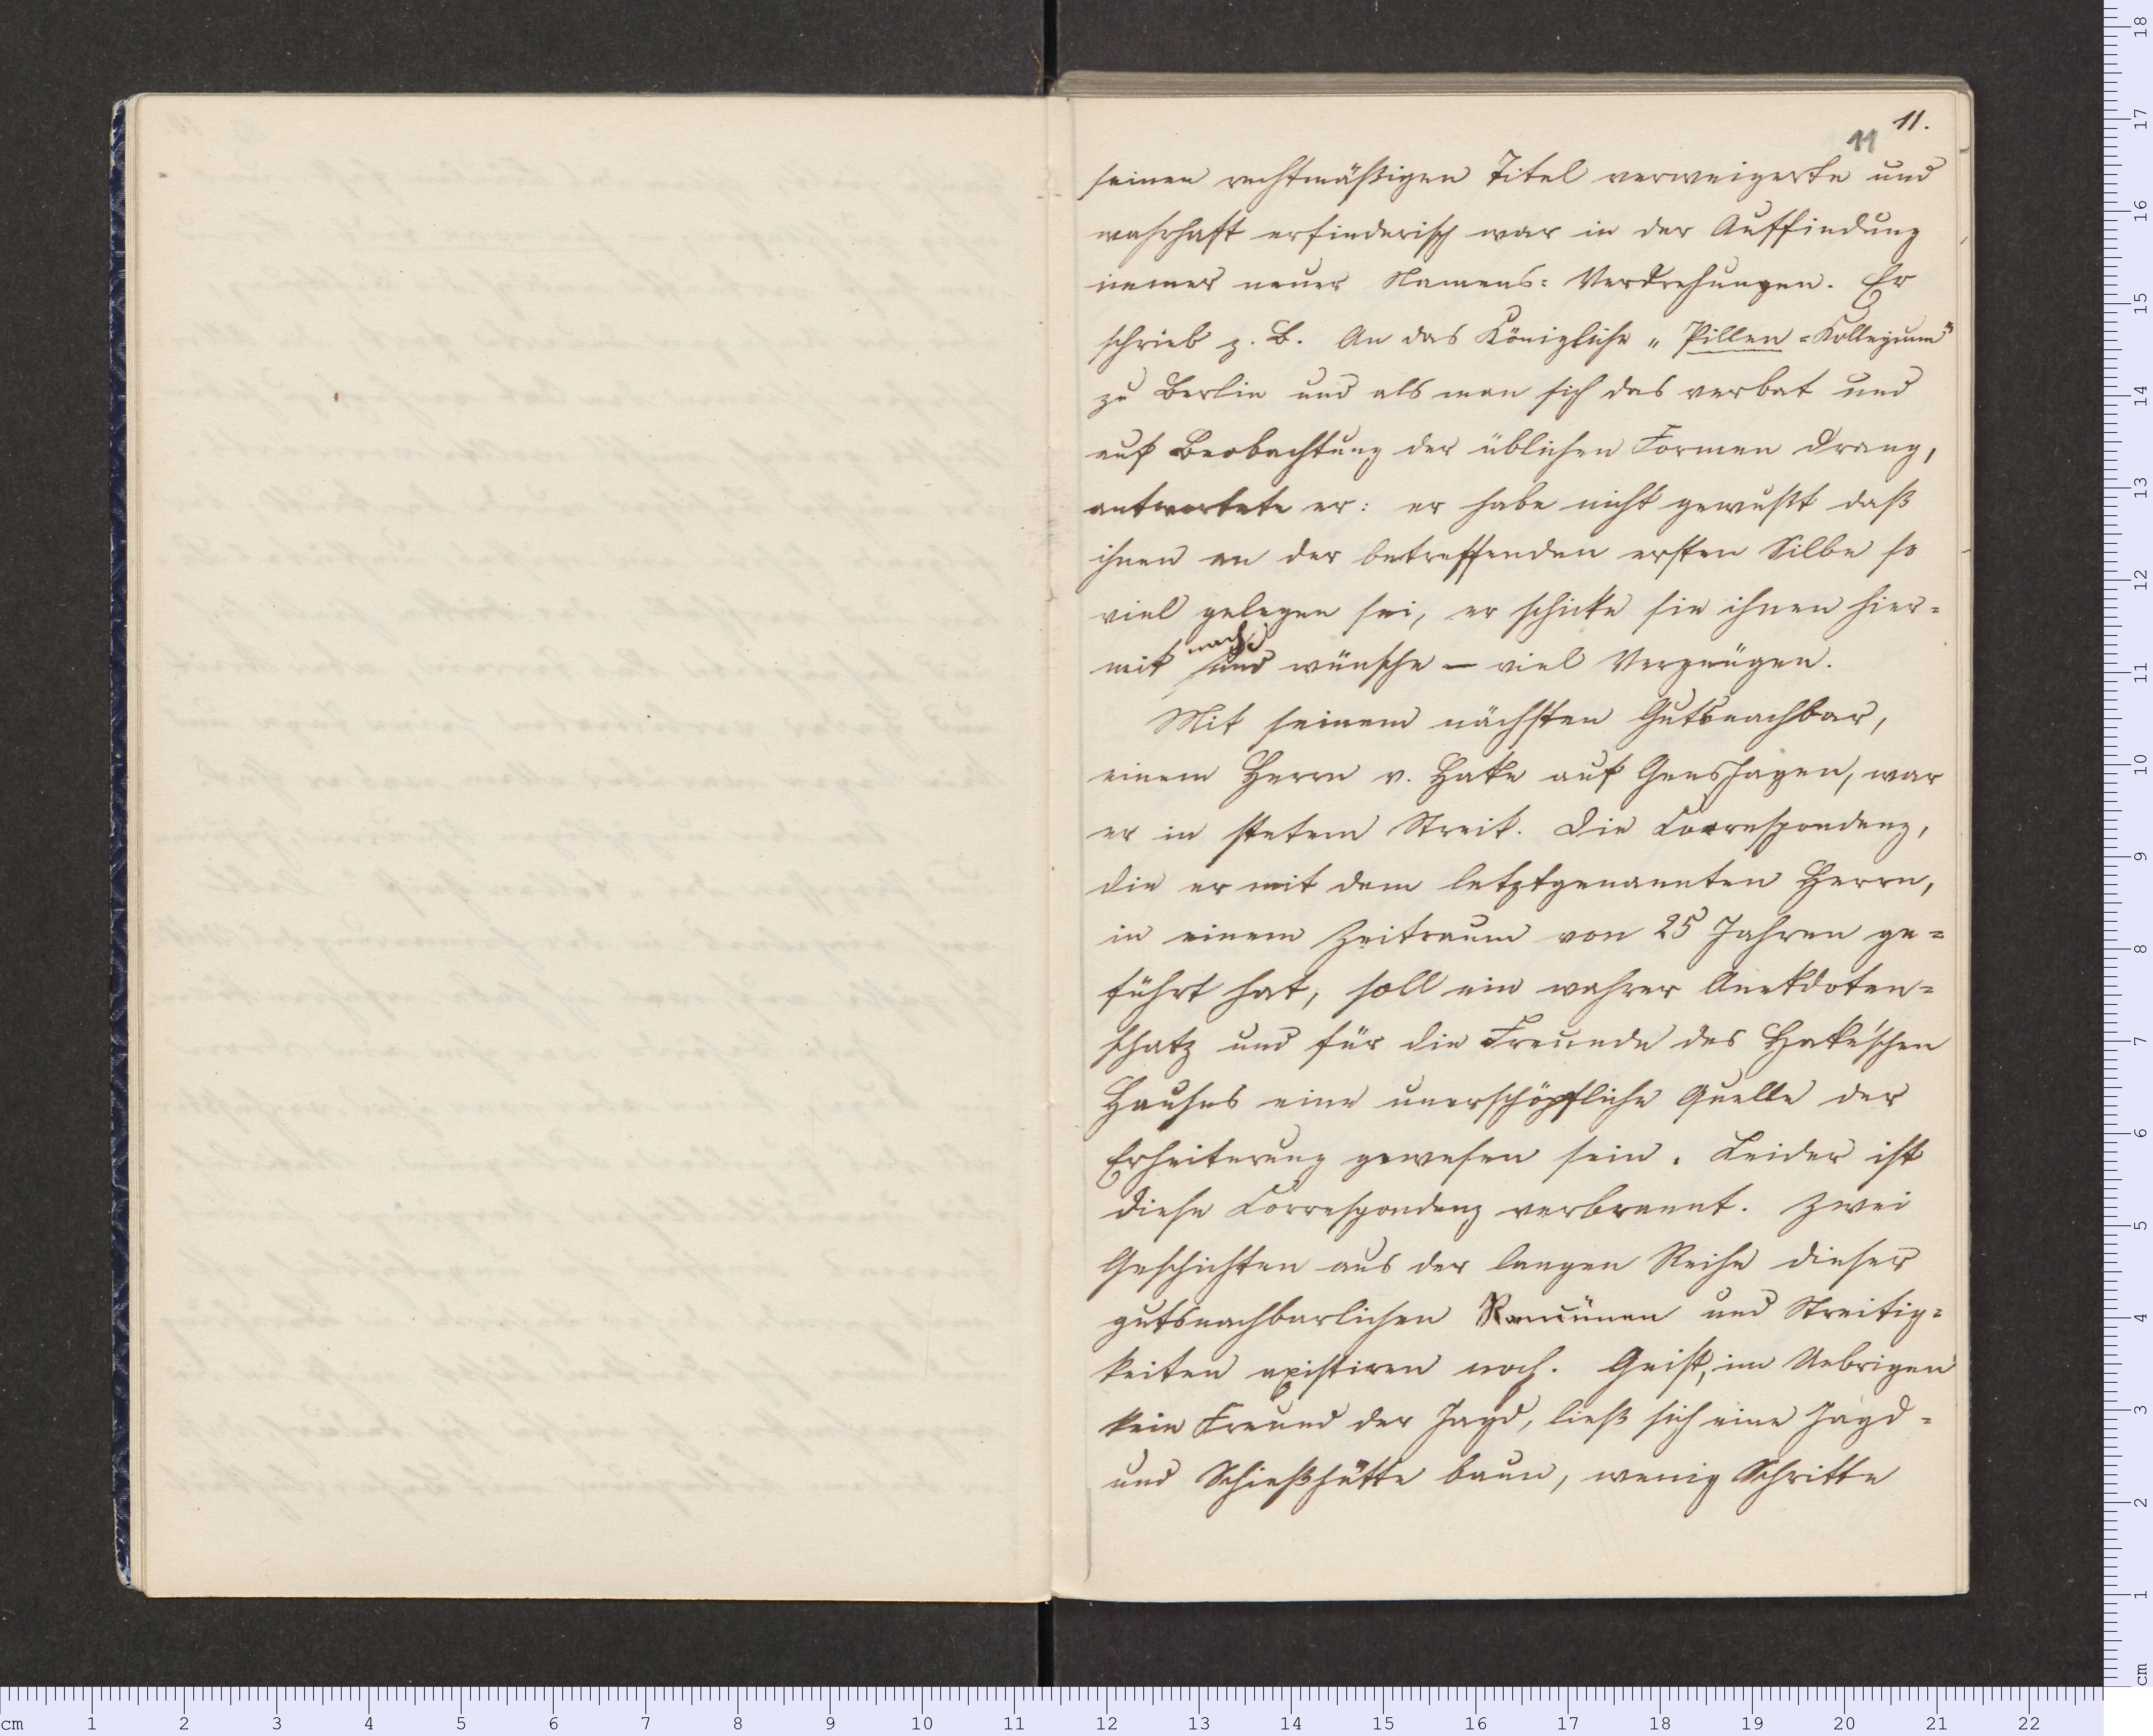 11.
11
seinen rechtmäßigen Titel verweigerte und
wahrhaft erfinderisch war in der Auffindung
immer neuer Namens= Verdrehungen. Er
schrieb z. B. An das Königliche „Pillen=Kollegium"
zu Berlin und als man sich das verbat und
auf Beobachtung der üblichen Formen drang,
antwortete er: er habe nicht gewußt daß
ihnen an der betreffenden ersten Silbe so
viel gelegen sei, er schicke sie ihnen hier=
nach
mit und wünsche — viel Vergnügen.
Mit seinem nächsten Gutsnachbar,
einem Herrn v. Hake auf Genshagen, war
er in stetem Streit. Die Correspondenz,
die er mit dem letztgenannten Herrn,
in einem Zeitraum von 25 Jahren ge=
führt hat, soll ein wahrer Anekdoten=
schatz und für die Freunde des Hake'schen
Hauses eine unerschöpfliche Quelle der
Erheiterung gewesen sein. Leider ist
diese Correspondenz verbrannt. Zwei
Geschichten aus der langen Reihe dieser
gutsnachbarlichen und Streitig=
keiten existiren noch. Geist, im Uebrigen
kein Freund der Jagd, ließ sich eine Jagd=
und Schießhütte baun, wenig Schritte